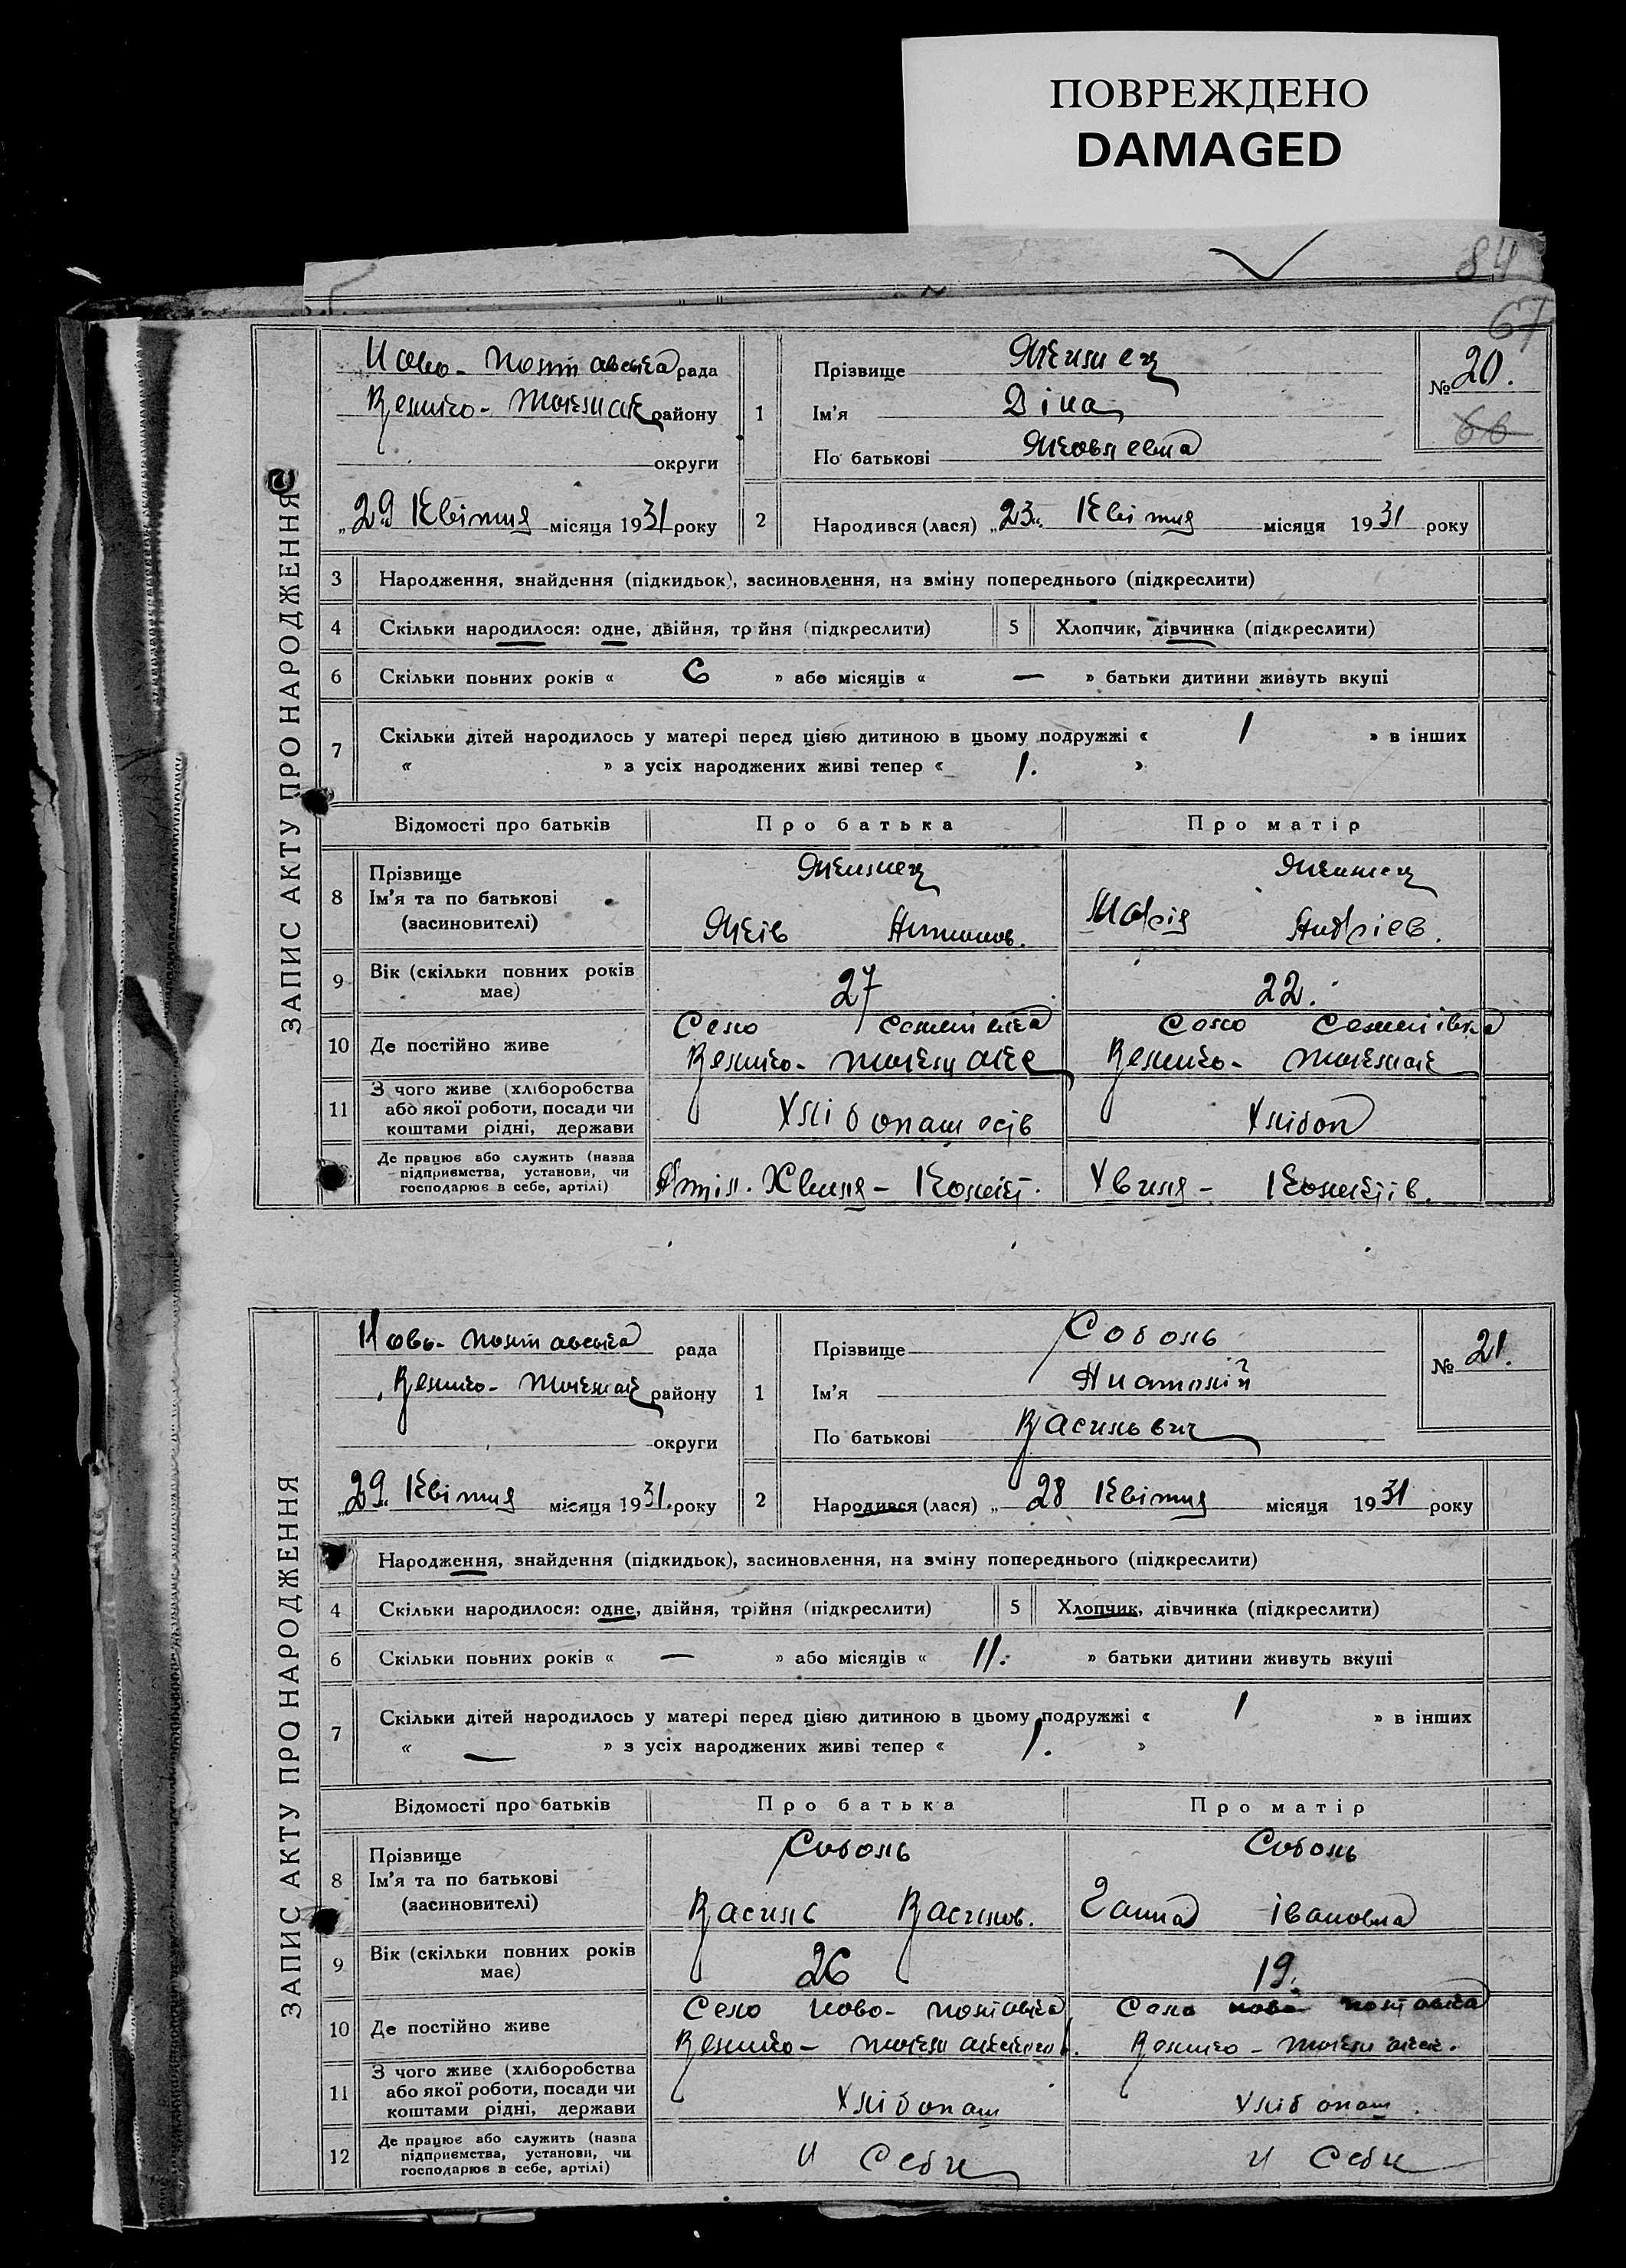 ПОВРЕЖДЕНО
DAMAGED
84
67
ЗАПИС АКТУ ПРО НАРОДЖЕННЯ
Ново-Полтавська рада
Велико-Токмак району
округи
„29 Квітня місяця 1931 року
1
Прізвище
Ім'я Діна
По батькові Яковлевна
№ 20.
66
2
Народився (лася) „23“ Квітня місяця 1931 року
3 Народження, знайдення (підкидьок), засиновлення, на зміну попереднього (підкреслити)
4 Скільки народилося: одне, двійня, трійня (підкреслити)
5 Хлопчик, дівчинка (підкреслити)
6 Скільки повних років « 6 » або місяців « — » батьки дитини живуть вкупі
7 Скільки дітей народилось у матері перед цією дитиною в цьому подружжі « 1 » в інших
« » з усіх народжених живі тепер « 1. »
Відомості про батьків Про батька Про матір
8 Прізвище
Ім'я та по батькові
(засиновителі)
Яків
Марія Андріев.
9 Вік (скільки повних років
має)
27 22.
10 Де постійно живе
Село Семенівка Село Семенівка
Велико-Токмаке Велико-Токмак
11 З чого живе (хліборобства
або якої роботи, посади чи
коштами рідні, держави
Хлібопашесів Хлібоп
Де працює або служить (назва
підприємства, установи, чи
господарює в себе, артілі)
Хвиля-
Хвиля-
ЗАПИС АКТУ ПРО НАРОДЖЕННЯ
Ново-Полтавська рада
Велико-Токмак району
округи
„29“ Квітня місяця 1931. року
1
Прізвище Соболь
Ім'я Анатолій
По батькові Васильвич
№ 21.
2
Народився (лася) „28 Квітня місяця 1931 року
Народження, знайдення (підкидьок), засиновлення, на зміну попереднього (підкреслити)
4 Скільки народилося: одне, двійня, трійня (підкреслити)
5 Хлопчик, дівчинка (підкреслити)
6 Скільки повних років « — » або місяців « 11. » батьки дитини живуть вкупі
7 Скільки дітей народилось у матері перед цією дитиною в цьому подружжі « 1 » в інших
« — » з усіх народжених живі тепер « 1. »
Відомості про батьків Про батька Про матір
8 Прізвище
Ім'я та по батькові
(засиновителі)
Соболь Соболь
Василь Васильов. Ганна Івановна
9 Вік (скільки повних років
має)
26 19.
10 Де постійно живе
Село Ново-Полтавка Село Ново Полтавка
Велико- Велико-Токмак.
11 З чого живе (хліборобства
або якої роботи, посади чи
коштами рідні, держави
Хлібопаш Хлібопаш
12 Де працює або служить (назва
підприємства, установи, чи
господарює в себе, артілі)
У Себи У Себи